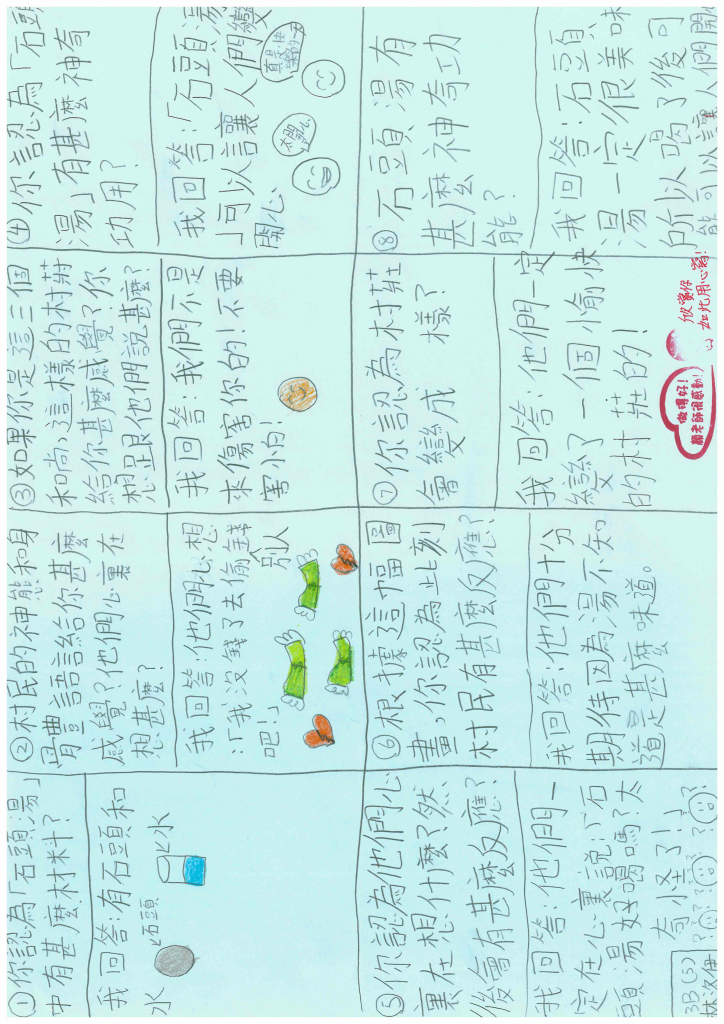 ①你認為「石頭湯」
中有甚麼材料？
我回答：有石頭和
水
石頭
水
②村民的神態和身
體語言給你甚麼
感覺？他們心裏在
想甚麼？
我回答：他們心想
：「我沒錢了去偷錢
別人
吧！」
③如果你是這三個
和尚，這樣的村莊
給你甚麼感覺？你
想跟他們說甚麼？
我回答：我們不是
來傷害你的！不要
害怕！
④你認為「石頭
湯」有甚麼神奇
功用？
我回答：「石頭湯
」可以讓人們變
開心
真是愉快的一天
太開心
⑤你認為他們心
裏在想什麼？然
後會有甚麼反應？
我回答：他們一
定在心裏說：「石
頭湯好喝嗎？太
奇怪了！」
3B(5)
⑥根據這幅圖
畫，你認為此刻
村民有甚麼反應？
我回答：他們十分
期待因為湯不知
道是甚麼味道。
⑦你認為村莊
會變成 樣？
我回答：他們一定
變了一個愉快
的村莊的！
做得好！
顏老師很感動！
欣賞你
如此用心啊！
⑧石頭湯有
甚麼神奇功
能？
我回答：石頭
湯一定很美味
所以喝了後可
能可以讓人們開